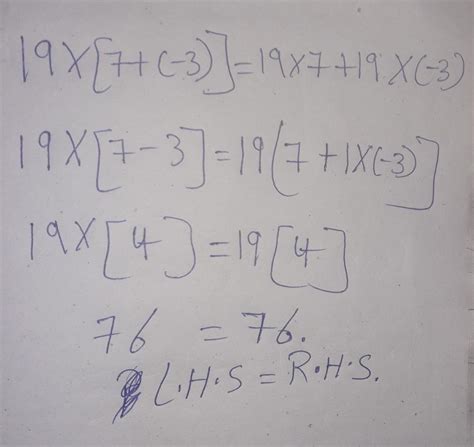 19×[7+(-3)]=19×7+19×(-3)
19×[7-3]=19(7+1×(-3)]
19×[4]=19[4]
76 = 76.
L.H.S = R.H.S.